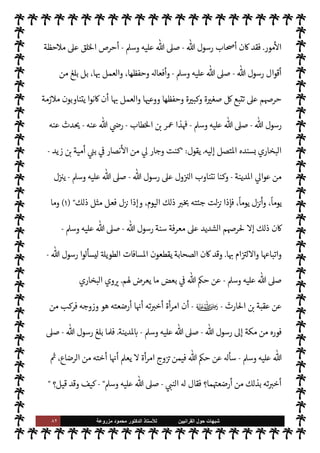 الأمور. فقد كان أصحاب رسول الله - صلى الله عليه وسلم - أحرص الخلق على ملاحظة
أقوال رسول الله - صلى الله عليه وسلم - وأفعاله وحفظها، والعمل بها، بل بلغ من
حرصهم على تتبع كل صغيرة وكبيرة وحفظها ووعيها والعمل بها أن كانوا يتناوبون ملازمة
رسول الله - صلى الله عليه وسلم - فهذا عمر بن الخطاب - رضي الله عنه - يحدث عنه
البخاري بسنده المتصل إليه. يقول: "كنت وجار لي من الأنصار في بني أمية بن زيد -
من عوالي المدينة - وكنا نتناوب النزول على رسول الله - صلى الله عليه وسلم - ينزل
يوماً، وأنزل يوماً، فإذا نزلت جئته بخبر ذلك اليوم، وإذا نزل فعل مثل ذلك" (١) وما
كان ذلك إلا لحرصهم الشديد على معرفة سنة رسول الله - صلى الله عليه وسلم -
واتباعها والالتزام بها. وقد كان الصحابة يقطعون المسافات الطويلة ليسألوا رسول الله -
صلى الله عليه وسلم - عن حكم الله في بعض ما يعرض لهم. يروي البخاري
عن عقبة بن الحارث - ﷺ - أن امرأة أخبرته أنها أرضعته هو وزوجه فركب من
فوره من مكة إلى رسول الله - صلى الله عليه وسلم - بالمدينة. فلما بلغ رسول الله - صلى
الله عليه وسلم - سأله عن حكم الله فيمن تزوج امرأة لا يعلم أنها أخته من الرضاع، ثم
أخبرته بذلك من أرضعتهما؟ فقال له النبي - صلى الله عليه وسلم" - كيف وقد قيل؟ "
شبهات حول القرآنيين للأستاذ الدكتور محمود مزروعة ٨٢